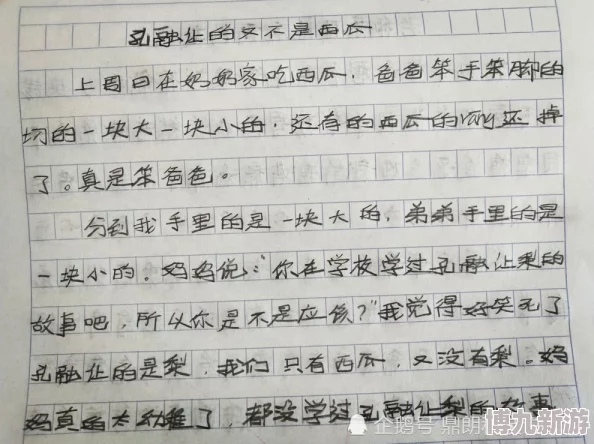 孔融让的又不是西瓜
上周日在奶奶家吃西瓜，爸爸笨手笨脚的
切的一块大一块小的，还有的西瓜的rang还掉
了。真是笨爸爸。
分到我手里的是一块大的，弟弟手里的是
一块小的。妈妈说：“你在学校学过孔融让梨的
故事吧，所以你是不是应该？”我觉得好笑死了
孔融让的是梨，我们只有西瓜，又没有梨。妈
妈真的太幼稚了，都没学过孔融让梨的故事
企鹅号 鼎朗
博九新游